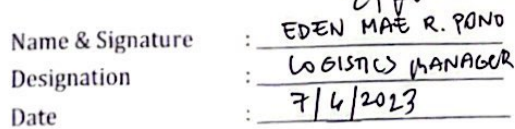 Name & Signature : EDEN MAE R. PONO
Designation : LOGISTICS MANAGER
Date : 7/6/2023